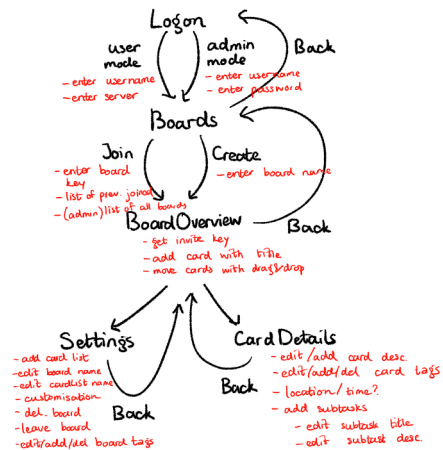 Logon
user
mode
admin
mode
Back
- enter username
- enter server
- enter username
- enter password
Boards
Join
Create
- enter board
key
- list of prev. joined
- (admin) list of all boards
- enter board name
BoardOverview
Back
- get invite key
- add card with title
- move cards with drag&drop
Settings
- add card list
- edit board name
- edit cardlist name
- customisation
- del. board
- leave board
- edit/add/del board tags
Back
CardDetails
Back
- edit/add card desc.
- edit/add/del card tags
- location/time?
- add subtasks
- edit subtask title
- edit subtast desc.